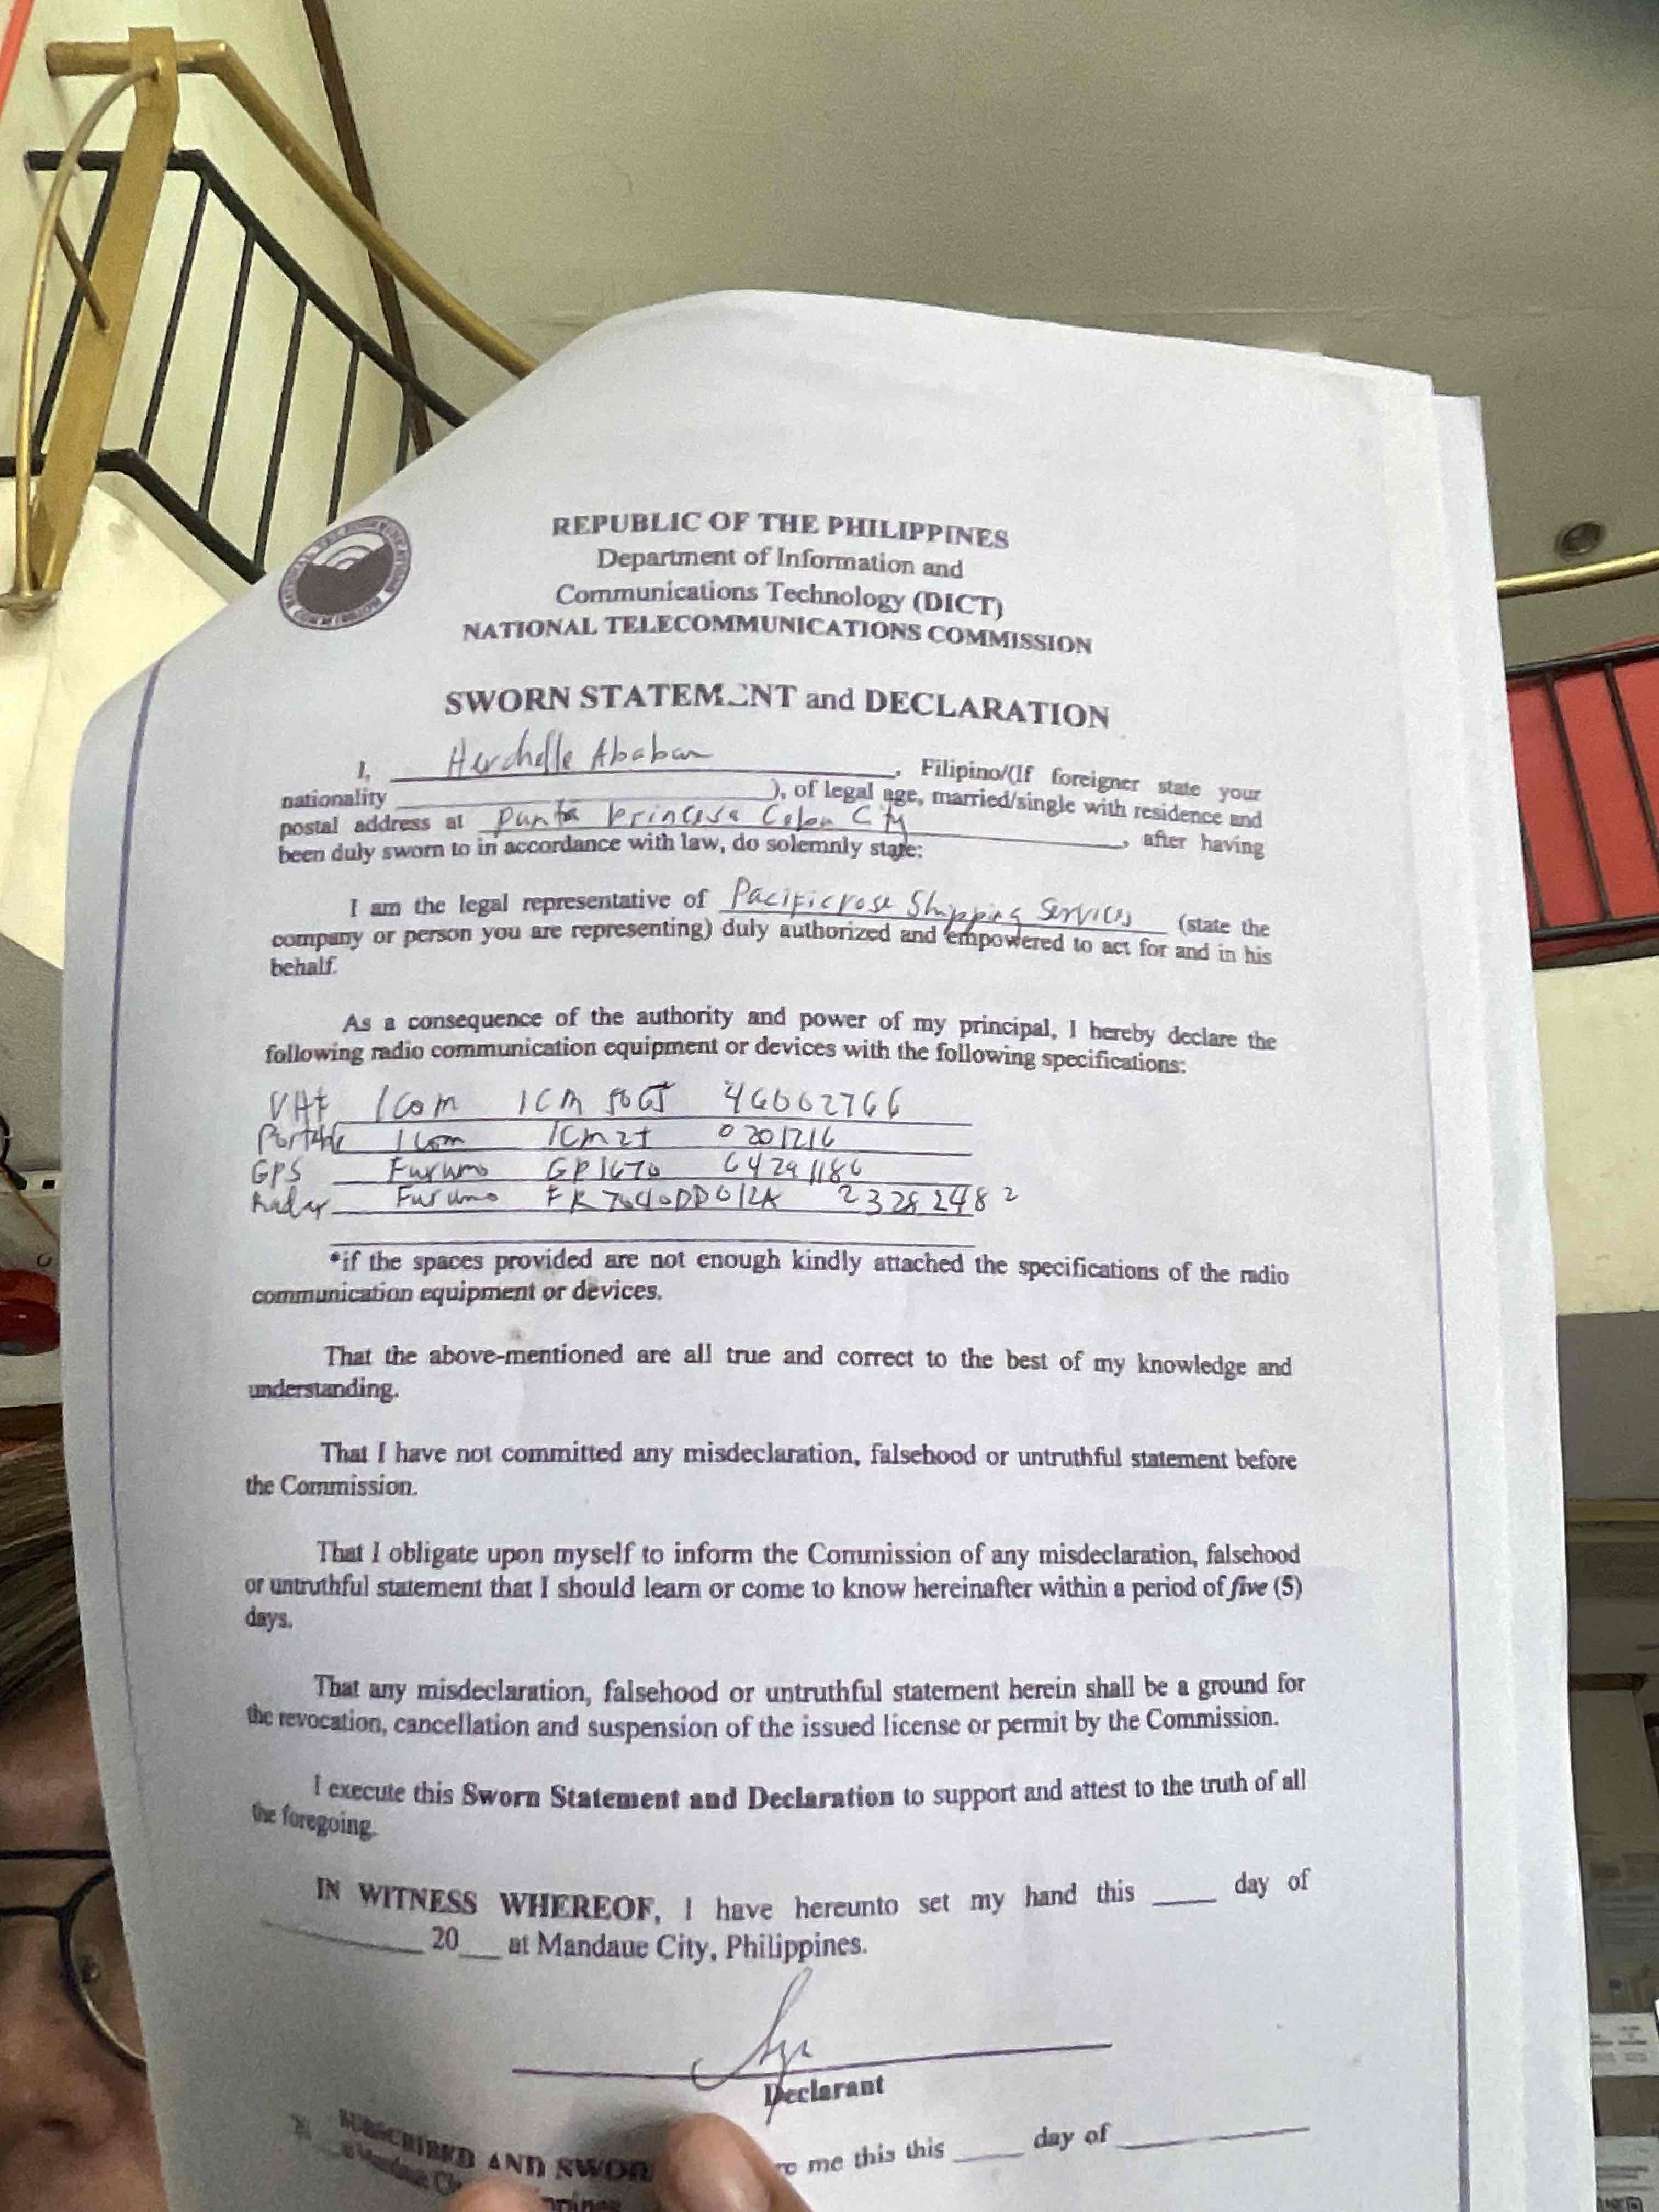 REPUBLIC OF THE PHILIPPINES
Department of Information and
Communications Technology (DICT)
NATIONAL TELECOMMUNICATIONS COMMISSION
SWORN STATEMENT and DECLARATION
I, Herchelle Ababan, Filipino/(If foreigner state your
nationality ____), of legal age, married/single with residence and
postal address at Punta Princesa Cebu City, after having
been duly sworn to in accordance with law, do solemnly state:
I am the legal representative of Pacificrose Shipping Services (state the
company or person you are representing) duly authorized and empowered to act for and in his
behalf.
As a consequence of the authority and power of my principal, I hereby declare the
following radio communication equipment or devices with the following specifications:
VHF Icom ICM
Portable Icom 0201216
GPS Furuno GP1670
Radar Furuno
*if the spaces provided are not enough kindly attached the specifications of the radio
communication equipment or devices.
That the above-mentioned are all true and correct to the best of my knowledge and
understanding.
That I have not committed any misdeclaration, falsehood or untruthful statement before
the Commission.
That I obligate upon myself to inform the Commission of any misdeclaration, falsehood
or untruthful statement that I should learn or come to know hereinafter within a period of five (5)
days.
That any misdeclaration, falsehood or untruthful statement herein shall be a ground for
the revocation, cancellation and suspension of the issued license or permit by the Commission.
I execute this Sworn Statement and Declaration to support and attest to the truth of all
the foregoing.
IN WITNESS WHEREOF, I have hereunto set my hand this ____ day of
____ 20__ at Mandaue City, Philippines.
Declarant
SUBSCRIBED AND SWOR me this this ____ day of ____